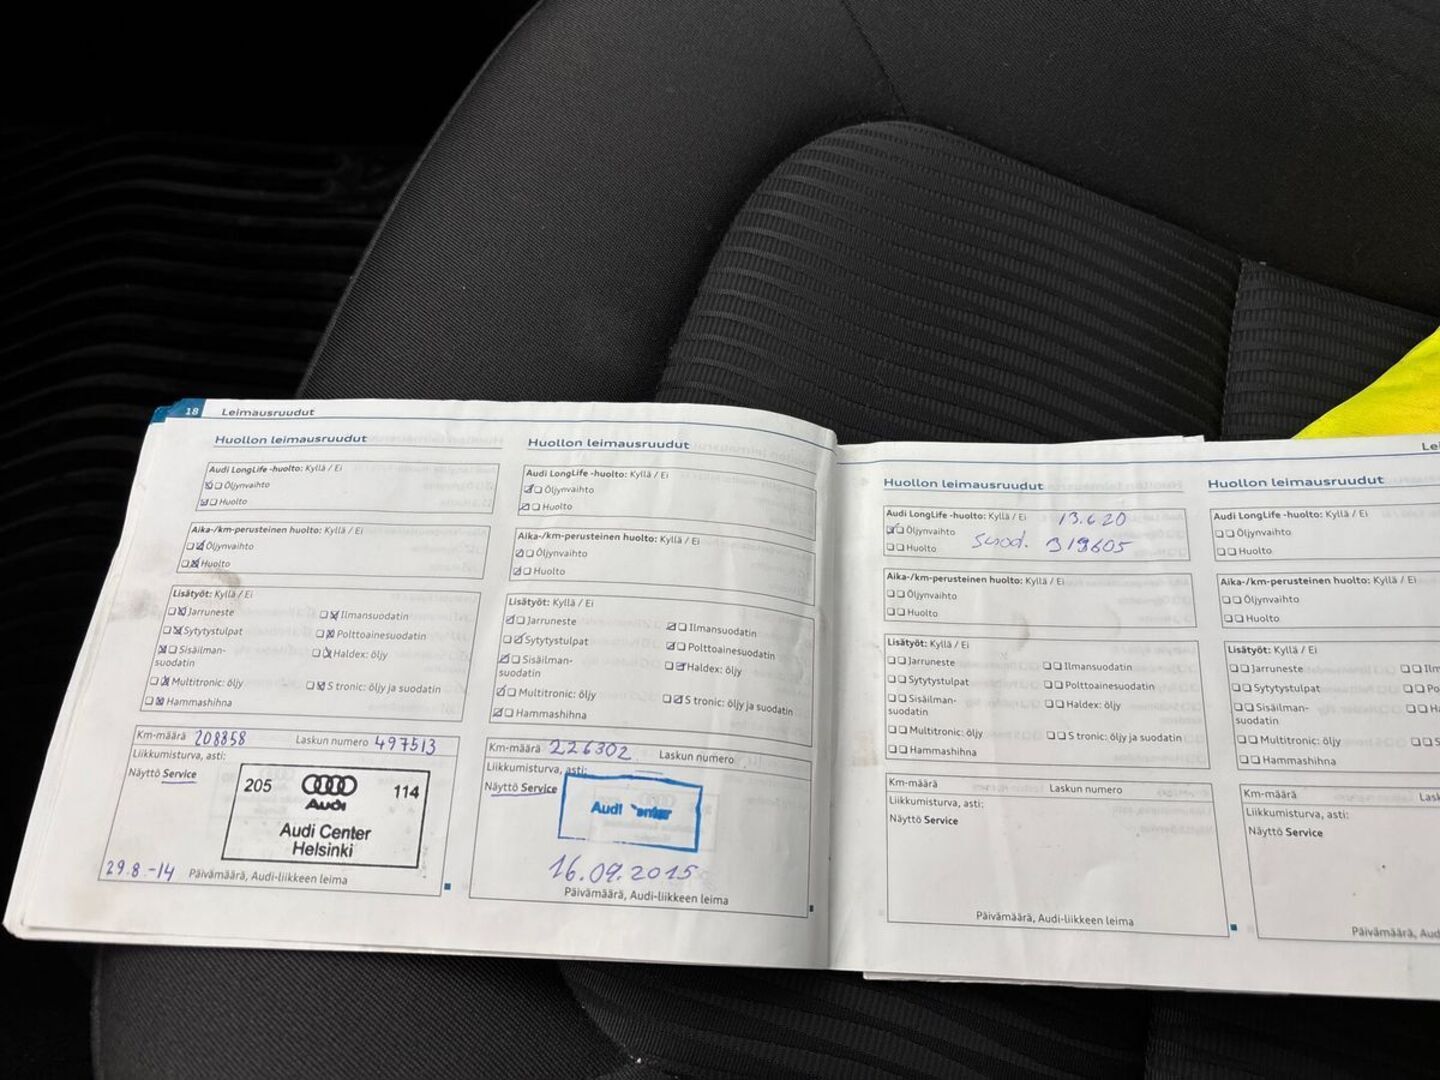 18 Leimausruudut
Huollon leimausruudut
Audi LongLife -huolto: Kyllä / Ei
Öljynvaihto
Huolto
Aika-/km-perusteinen huolto: Kyllä / Ei
Öljynvaihto
Huolto
Lisätyöt: Kyllä / Ei
Jarruneste
Ilmansuodatin
Sytytystulpat
Polttoainesuodatin
Sisäilman-
suodatin
Haldex: öljy
Multitronic: öljy
S tronic: öljy ja suodatin
Hammashihna
Km-määrä 208858 Laskun numero 497513
Liikkumisturva, asti:
Näyttö Service
205 Audi 114
Audi Center
Helsinki
29.8.-14 Päivämäärä, Audi-liikkeen leima
Huollon leimausruudut
Audi LongLife -huolto: Kyllä / Ei
Öljynvaihto
Huolto
Aika-/km-perusteinen huolto: Kyllä / Ei
Öljynvaihto
Huolto
Lisätyöt: Kyllä / Ei
Jarruneste
Ilmansuodatin
Sytytystulpat
Polttoainesuodatin
Sisäilman-
suodatin
Haldex: öljy
Multitronic: öljy
S tronic: öljy ja suodatin
Hammashihna
Km-määrä 226302 Laskun numero
Liikkumisturva, asti:
Näyttö Service
Audi
16.09.2015
Päivämäärä, Audi-liikkeen leima
Huollon leimausruudut
Audi LongLife -huolto: Kyllä / Ei 13.6.20
Öljynvaihto
Huolto suod. 319605
Aika-/km-perusteinen huolto: Kyllä / Ei
Öljynvaihto
Huolto
Lisätyöt: Kyllä / Ei
Jarruneste
Ilmansuodatin
Sytytystulpat
Polttoainesuodatin
Sisäilman-
suodatin
Haldex: öljy
Multitronic: öljy
S tronic: öljy ja suodatin
Hammashihna
Km-määrä Laskun numero
Liikkumisturva, asti:
Näyttö Service
Päivämäärä, Audi-liikkeen leima
Lei
Huollon leimausruudut
Audi LongLife -huolto: Kyllä / Ei
Öljynvaihto
Huolto
Aika-/km-perusteinen huolto: Kyllä / Ei
Öljynvaihto
Huolto
Lisätyöt: Kyllä / Ei
Jarruneste
Ilm
Sytytystulpat
Po
Sisäilman-
suodatin
Ha
Multitronic: öljy
S
Hammashihna
Km-määrä Lask
Liikkumisturva, asti:
Näyttö Service
Päivämäärä, Aud